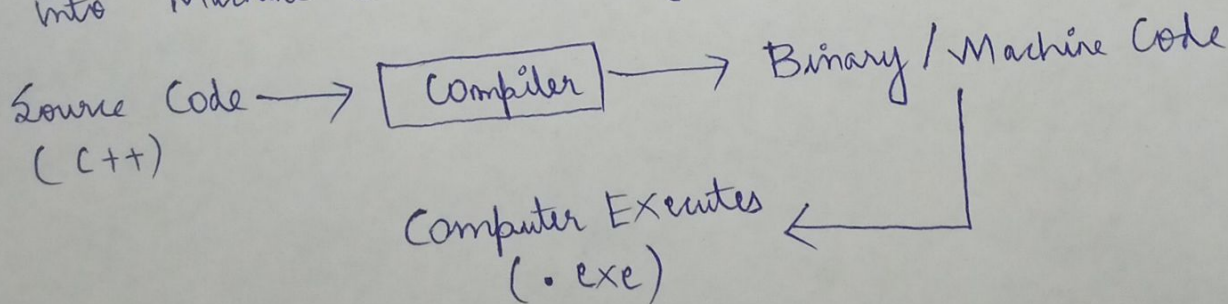 into
Source Code → Compiler → Binary / Machine Code
(C++)
Computer Executes
(.exe)